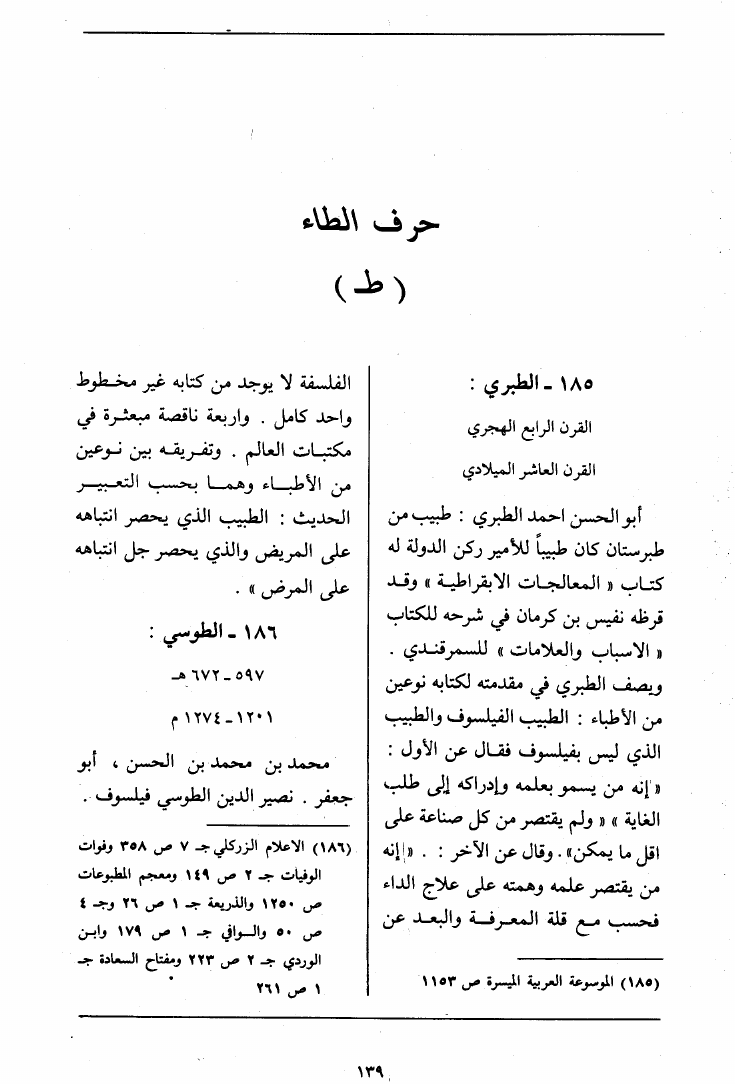 حرف الطاء
( طـ )
١٨٥ ـ الطبري :
القرن الرابع الهجري
القرن العاشر الميلادي
أبو الحسن احمد الطبري : طبيب من
طبرستان كان طبيباً للأمير ركن الدولة له
كتـاب « المعالجـات الابقراطيـة » وقـد
قرظه نفيس بن كرمان في شرحه للكتاب
« الاسباب والعلامات » للسمرقنـدي .
ويصف الطبري في مقدمته لكتابه نوعين
من الأطباء : الطبيب الفيلسوف والطبيب
الذي ليس بفيلسوف فقـال عن الأول :
« إنه من يسمو بعلمه وإدراكه إلى طلب
الغاية » « ولم يقتصر من كل صناعة على
اقل ما يمكن» . وقال عن الآخر : . « إنه
من يقتصر علمه وهمته على علاج الداء
فحسب مـع قلة المعـرفـة والبعـد عن
(١٨٥) الموسوعة العربية الميسرة ص ١١٥٣
الفلسفة لا يوجد من كتابه غير مخـطوط
واحد كامل . واربعة ناقصة مبعثـرة في
مكتبـات العالم . وتفـريقـه بين نـوعين
من الأطبـاء وهمـا بحسب التعبيـــر
الحديث : الطبيب الذي يحصر انتباهه
على المريض والذي يحصر جل انتباهه
على المرض » .
١٨٦ ـ الطوسي :
٥٩٧ ـ ٦٧٢ هـ
١٢٠١ ـ ١٢٧٤ م
محمـد بن محمـد بن الحسن ، أبو
جعفر . نصير الدين الطوسي فيلسوف .
(١٨٦) الاعلام الزركلي جـ ٧ ص ٣٥٨ وفوات
الوفيات جـ ٢ ص ١٤٩ ومعجم المطبوعات
ص ١٢٥٠ والذريعة جـ ١ ص ٢٦ وجـ ٤
ص ٥٠ والـوافي جـ ١ ص ١٧٩ وابـن
الوردي جـ ٢ ص ٢٢٣ ومفتاح السعادة جـ
١ ص ٢٦١
١٣٩